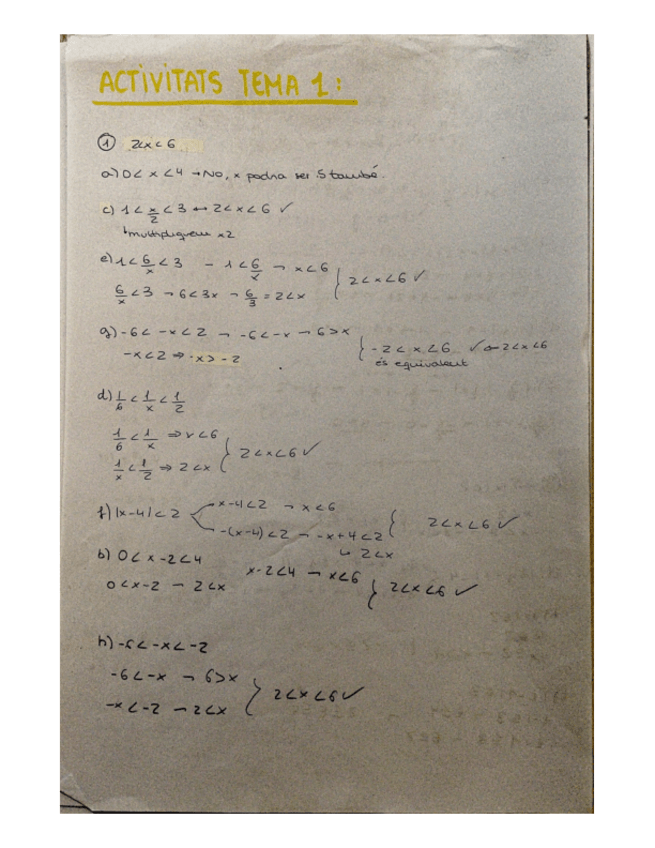 ACTIVITATS TEMA 1:
① 2<x<6
a) 0 < x < 4 → No, x podria ser 5 també.
c) 1 < x/2 < 3 ↔ 2<x<6 ✓
↳ multipliquem x2
e) 1 < 6/x < 3 → 1 < 6/x → x<6
6/x < 3 → 6<3x → 6/3 = 2<x } 2<x<6 ✓
g) -6 < -x < 2 → -6<-x → 6>x
-x<2 ⇒ x > -2 } -2 < x < 6 ✓ 2<x<6
és equivalent
d) 1/6 < 1/x < 1/2
1/6 < 1/x ⇒ x<6
1/x < 1/2 ⇒ 2<x } 2<x<6 ✓
f) |x-4| < 2 x-4<2 → x<6
-(x-4)<2 → -x+4<2 } 2<x<6 ✓
↳ 2<x
b) 0 < x-2<4 x-2<4 → x<6
0<x-2 → 2<x } 2<x<6 ✓
h) -6<-x<-2
-6<-x → 6>x
-x<-2 → 2<x } 2<x<6 ✓